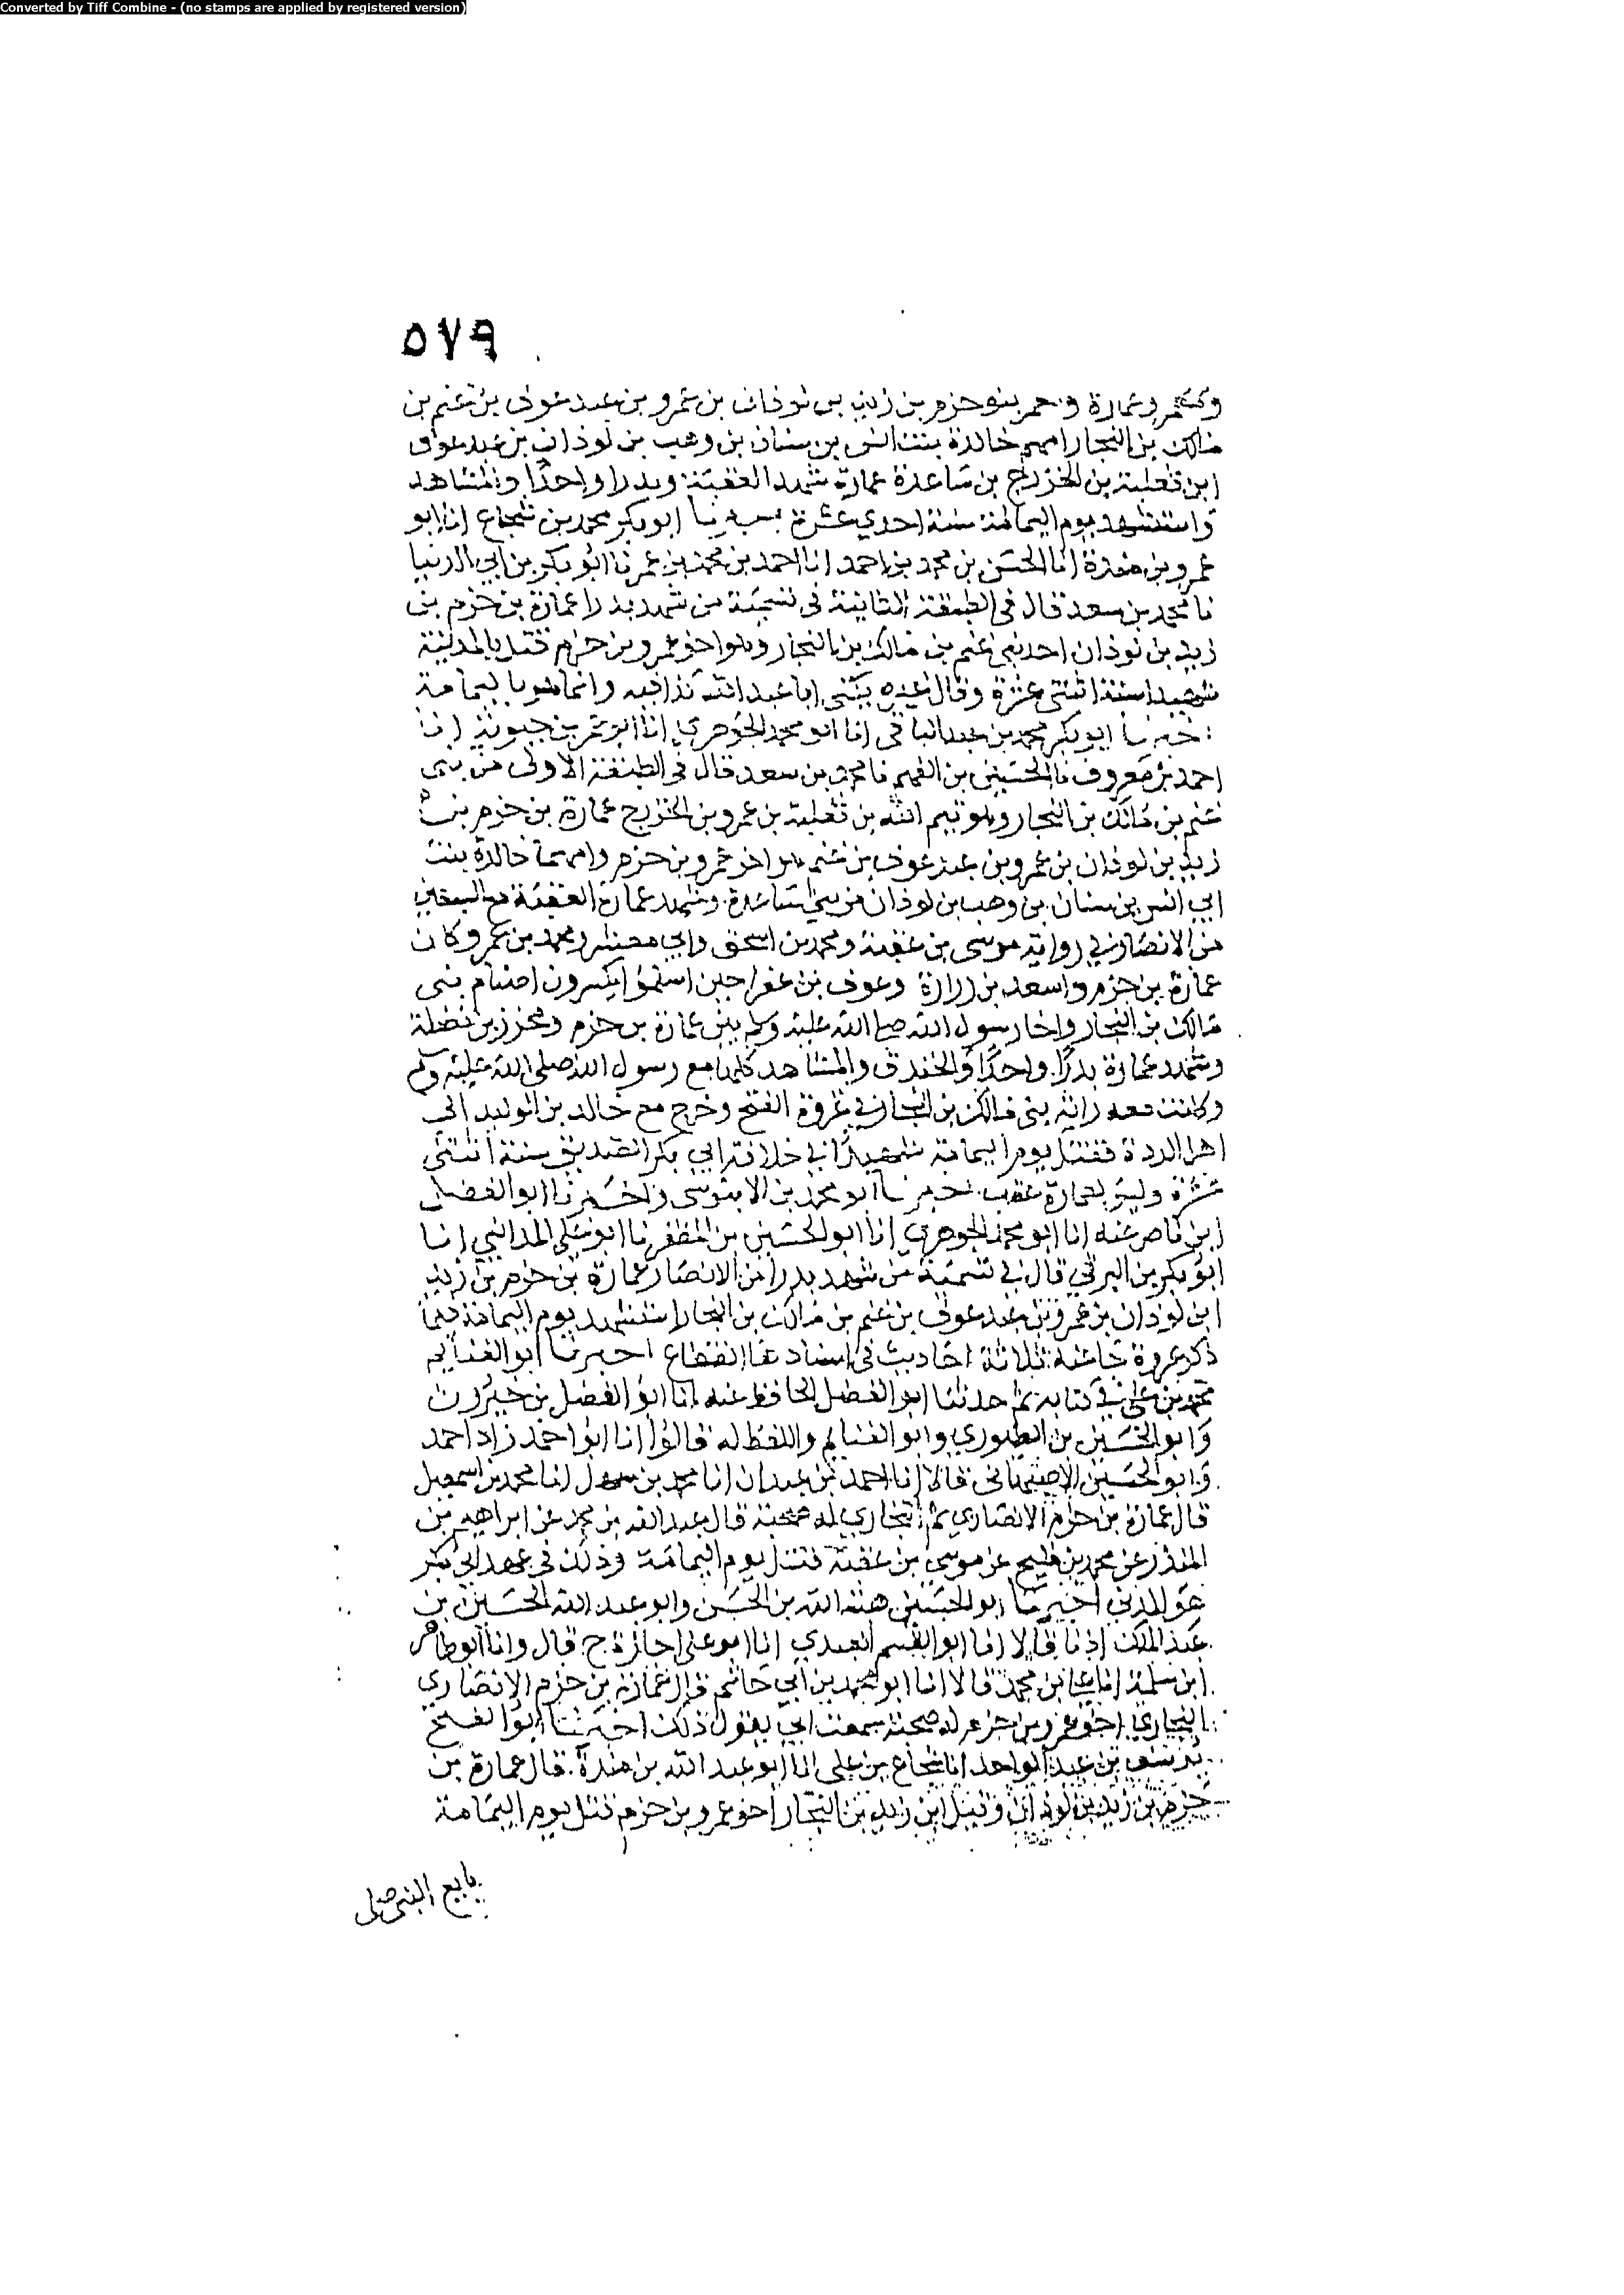 Converted by Tiff Combine - (no stamps are applied by registered version)
٥٧٩
وعمرو عمارة و معمر بنو حزم بن زيد بن لوذان بن عمرو بن عبد عوف بن غنم بن
مالك بن النجار امهم خالدة بنت انس بن سنان بن وهب بن لوذان بن عبد عوف
ابن ثعلبة بن الخزرج بن ساعدة عمارة شهد العقبة وبدرا واحدا والمشاهد
واستشهد يوم اليمامة سنة احدي عشرة اخبرنا ابو بكر محمد بن شجاع انا ابو
عمرو بن مندة انا الحسن بن محمد بن احمد انا احمد بن محمد بن عمر نا ابو بكر بن ابي الدنيا
نا محمد بن سعد قال في الطبقة الثانية في تسمية من شهد بدرا عمارة بن حزم بن
زيد بن لوذان احد بني غنم بن مالك بن النجار وهو اخو عمرو بن حزم قتل بالمدينة
شهيدا سنة اثنتي عشرة وقال غيره يكنى ابا عبد الله كذا فيه وانما هو باليمامة
اخبرنا ابو بكر محمد بن عبد الباقي انا ابو محمد الجوهري انا ابو عمر بن حيوية انا
احمد بن معروف نا الحسين بن الفهم نا محمد بن سعد قال في الطبقة الاولى من بني
غنم بن مالك بن النجار وهو تيم الله بن ثعلبة بن عمرو بن الخزرج عمارة بن حزم بن
زيد بن لوذان بن عمرو بن عبد عوف بن غنم هو اخو عمرو بن حزم وامهما خالدة بنت
ابي انس بن سنان بن وهب بن لوذان من بني ساعدة وشهد عمارة العقبة مع السبعين
من الانصار في رواية موسى بن عقبة ومحمد بن اسحق وابي معشر ومحمد بن عمر وكان
عمارة بن حزم واسعد بن زرارة وعوف بن عفرا حين اسلموا يكسرون اصنام بني
مالك بن النجار واخا رسول الله صلى الله عليه وسلم بين عمارة بن حزم ومحرز بن نضلة
وشهد عمارة بدرًا واحدًا والخندق والمشاهد كلها مع رسول الله صلى الله عليه وسلم
وكانت معه راية بني مالك بن النجار في غزوة الفتح وخرج مع خالد بن الوليد الى
اهل الردة فقتل يوم اليمامة شهيدًا في خلافة ابي بكر الصديق سنة اثنتي
عشرة وليس لعمارة عقب اخبرنا ابو محمد بن الابنوسي واخبرنا ابو الفضل
ابن ناصر عنه انا ابو محمد الجوهري انا ابو الحسين بن المظفر نا ابو علي المدائني انا
ابو بكر بن البرقي قال في تسمية من شهد بدرا من الانصار عمارة بن حزم بن زيد
ابن لوذان بن عمرو بن عبد عوف بن غنم بن مالك بن النجار استشهد يوم اليمامة فيما
ذكر عروة جا عنه ثلاثة احاديث في اسنادها انقطاع اخبرنا ابو الغنايم
محمد بن علي في كتابه ثم حدثنا ابو الفضل الحافظ عنه انا ابو الفضل بن خيرون
وابو الحسين بن الطيوري وابو الغنايم واللفظ له قالوا انا ابو احمد زاد احمد
وابو الحسين الاصبهاني قالا انا احمد بن عبدان انا محمد بن سهل انا محمد بن اسمعيل
قال عمارة بن حزم الانصاري ثم النجاري له صحبة قال عبد الله بن محمد عن ابراهيم بن
المنذر عن محمد بن فليح عن موسى بن عقبة قتل يوم اليمامة وذلك في عهد ابي بكر
هو المدني اخبرنا ابو الحسين هبة الله بن الحسن وابو عبد الله الحسين بن
عبد الملك اذنا قالا انا ابو القسم العبدي انا ابو علي اجازة ح قال وانا ابو طاهر
ابن سلمة انا علي بن محمد قالا انا ابو محمد بن ابي حاتم قال عمارة بن حزم الانصاري
النجاري اخو عمرو بن حزم له صحبة سمعت ابي يقول ذلك اخبرنا ابو الفتح
يوسف بن عبد الواحد انا شجاع بن علي انا ابو عبد الله بن مندة قال عمارة بن
حزم بن زيد بن لوذان وقيل ابن زيد بن النجار اخو عمرو بن حزم قتل يوم اليمامة
بايع النبي صلى